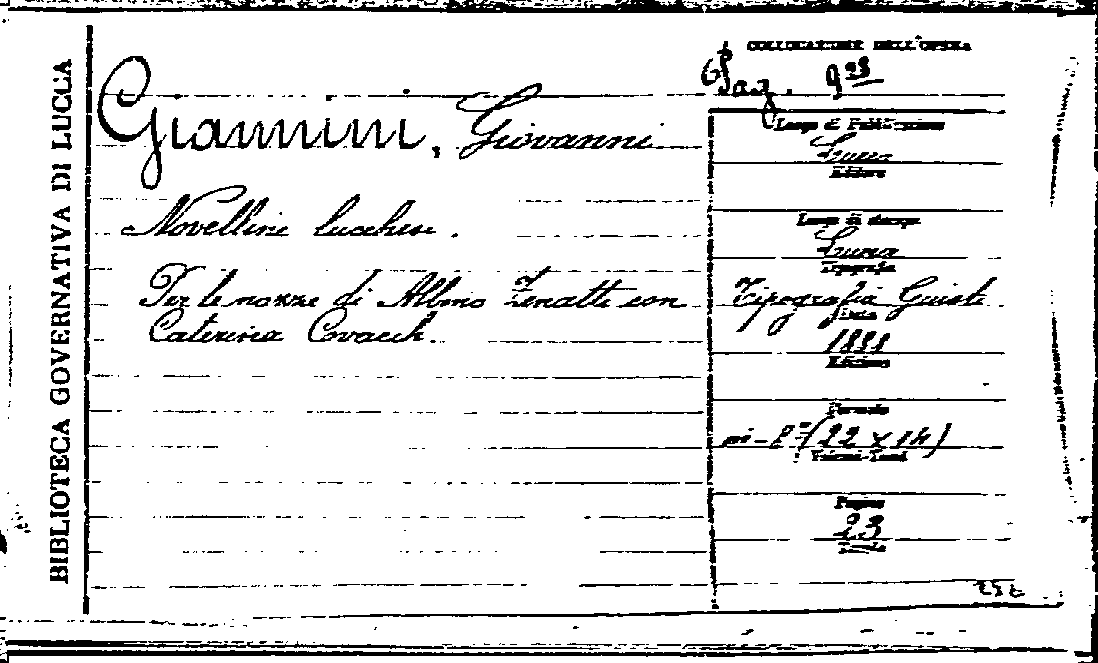 BIBLIOTECA GOVERNATIVA DI LUCCA
COLLOCAZIONE DELL'OPERA
Giannini, Giovanni
Novelline lucchesi.
Per le nozze di Albino Zenatti con
Caterina Covacich.
Luogo di Pubblicazione
Lucca
Editore
Luogo di stampa
Lucca
Tipografia
Tipografia Giusti
Data
Edizione
Formato
in-8º (22 x 14)
Volumi-Tomi
Pagine
23
Tavole